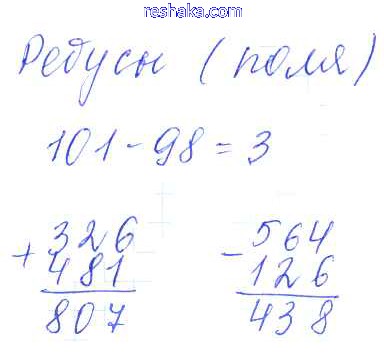 reshaka.com
Ребусы (поля)
101-98=3
+ 326
481
807
- 564
126
438